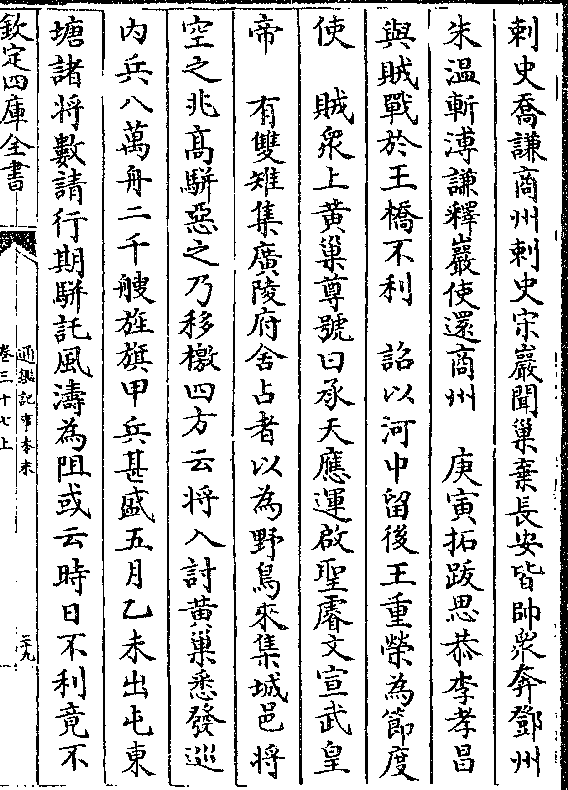 刺史喬謙商州刺史宋巖聞巢棄長安皆帥衆奔鄧州
朱温斬溥謙釋巖使還商州　庚寅拓跋思恭李孝昌
與賊戰於王橋不利　詔以河中留後王重榮為節度
使　賊衆上黄巢尊號曰承天應運啟聖睿文宣武皇
帝　有雙雉集廣陵府舍占者以為野鳥來集城邑將
空之兆髙駢惡之乃移檄四方云將入討黄巢悉發巡
内兵八萬舟二千艘旌旗甲兵甚盛五月乙未出屯東
塘諸将數請行期駢託風濤為阻或云時日不利竟不
欽定四庫全書
通鑑記事本末
卷三十七上
二十九